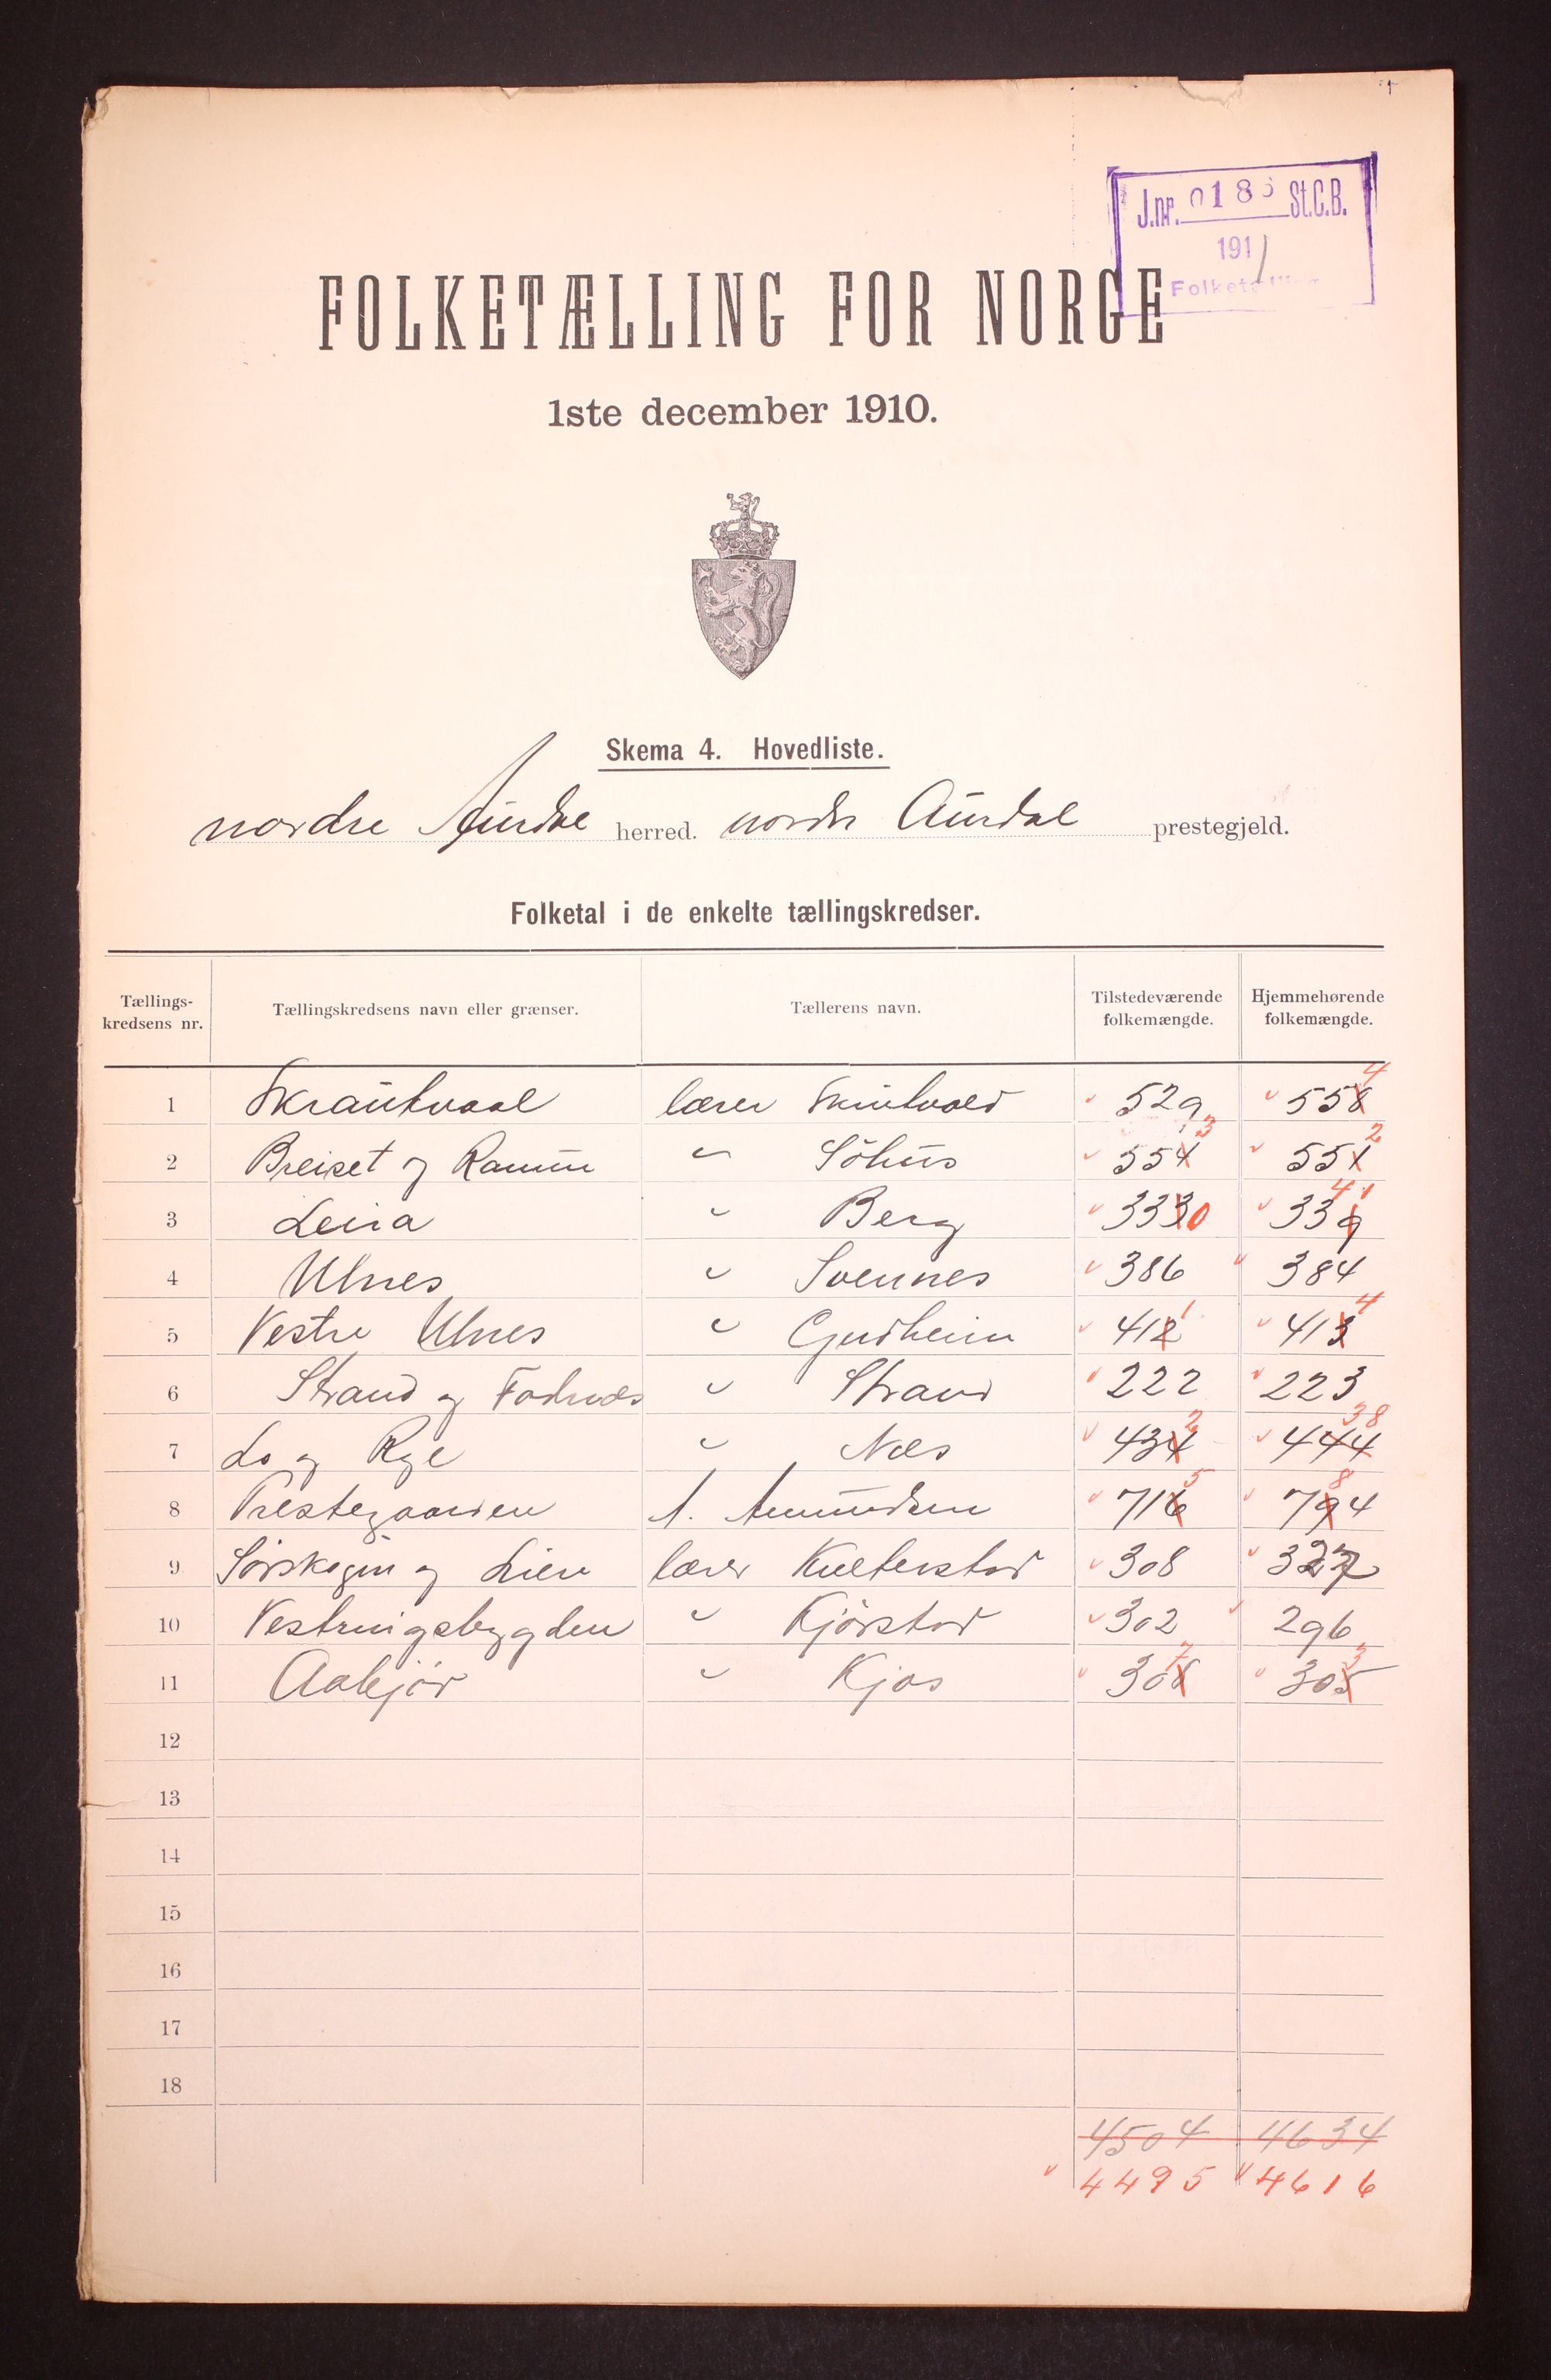 J.nr. 018 St.C.B.
1911
Folketælling
FOLKETÆLLING FOR NORGE
1ste december 1910.
Skema 4. Hovedliste.
nordre Aurdal herred. nordre Aurdal prestegjeld.
Folketal i de enkelte tællingskredser.
Tællingskredsens nr. Tællingskredsens navn eller grænser. Tællerens navn. Tilstedeværende folkemængde. Hjemmehørende folkemængde.
1 Skrautvaal lærer Skrutvold 529 558 4
2 Breiset og Ranum " Söhus 554 3 551 2
3 Leira " Berg 333 0 339 41
4 Ulnes " Svennes 386 384
5 Vestre Ulnes " Gudheim 412 1 413 4
6 Strand og Fodnæs " Strand 222 223
7 Lo og Rye " Næs 434 2 444 38
8 Prestegaarden A. Amundsen 716 5 794 8
9 Sörskogen og Lien lærer 308 327
10 Vestringsbygden " Kjörstad 302 296
11 Aabjör " Kjos 308 7 305 3
12
13
14
15
16
17
18
4504 4634
4495 4616